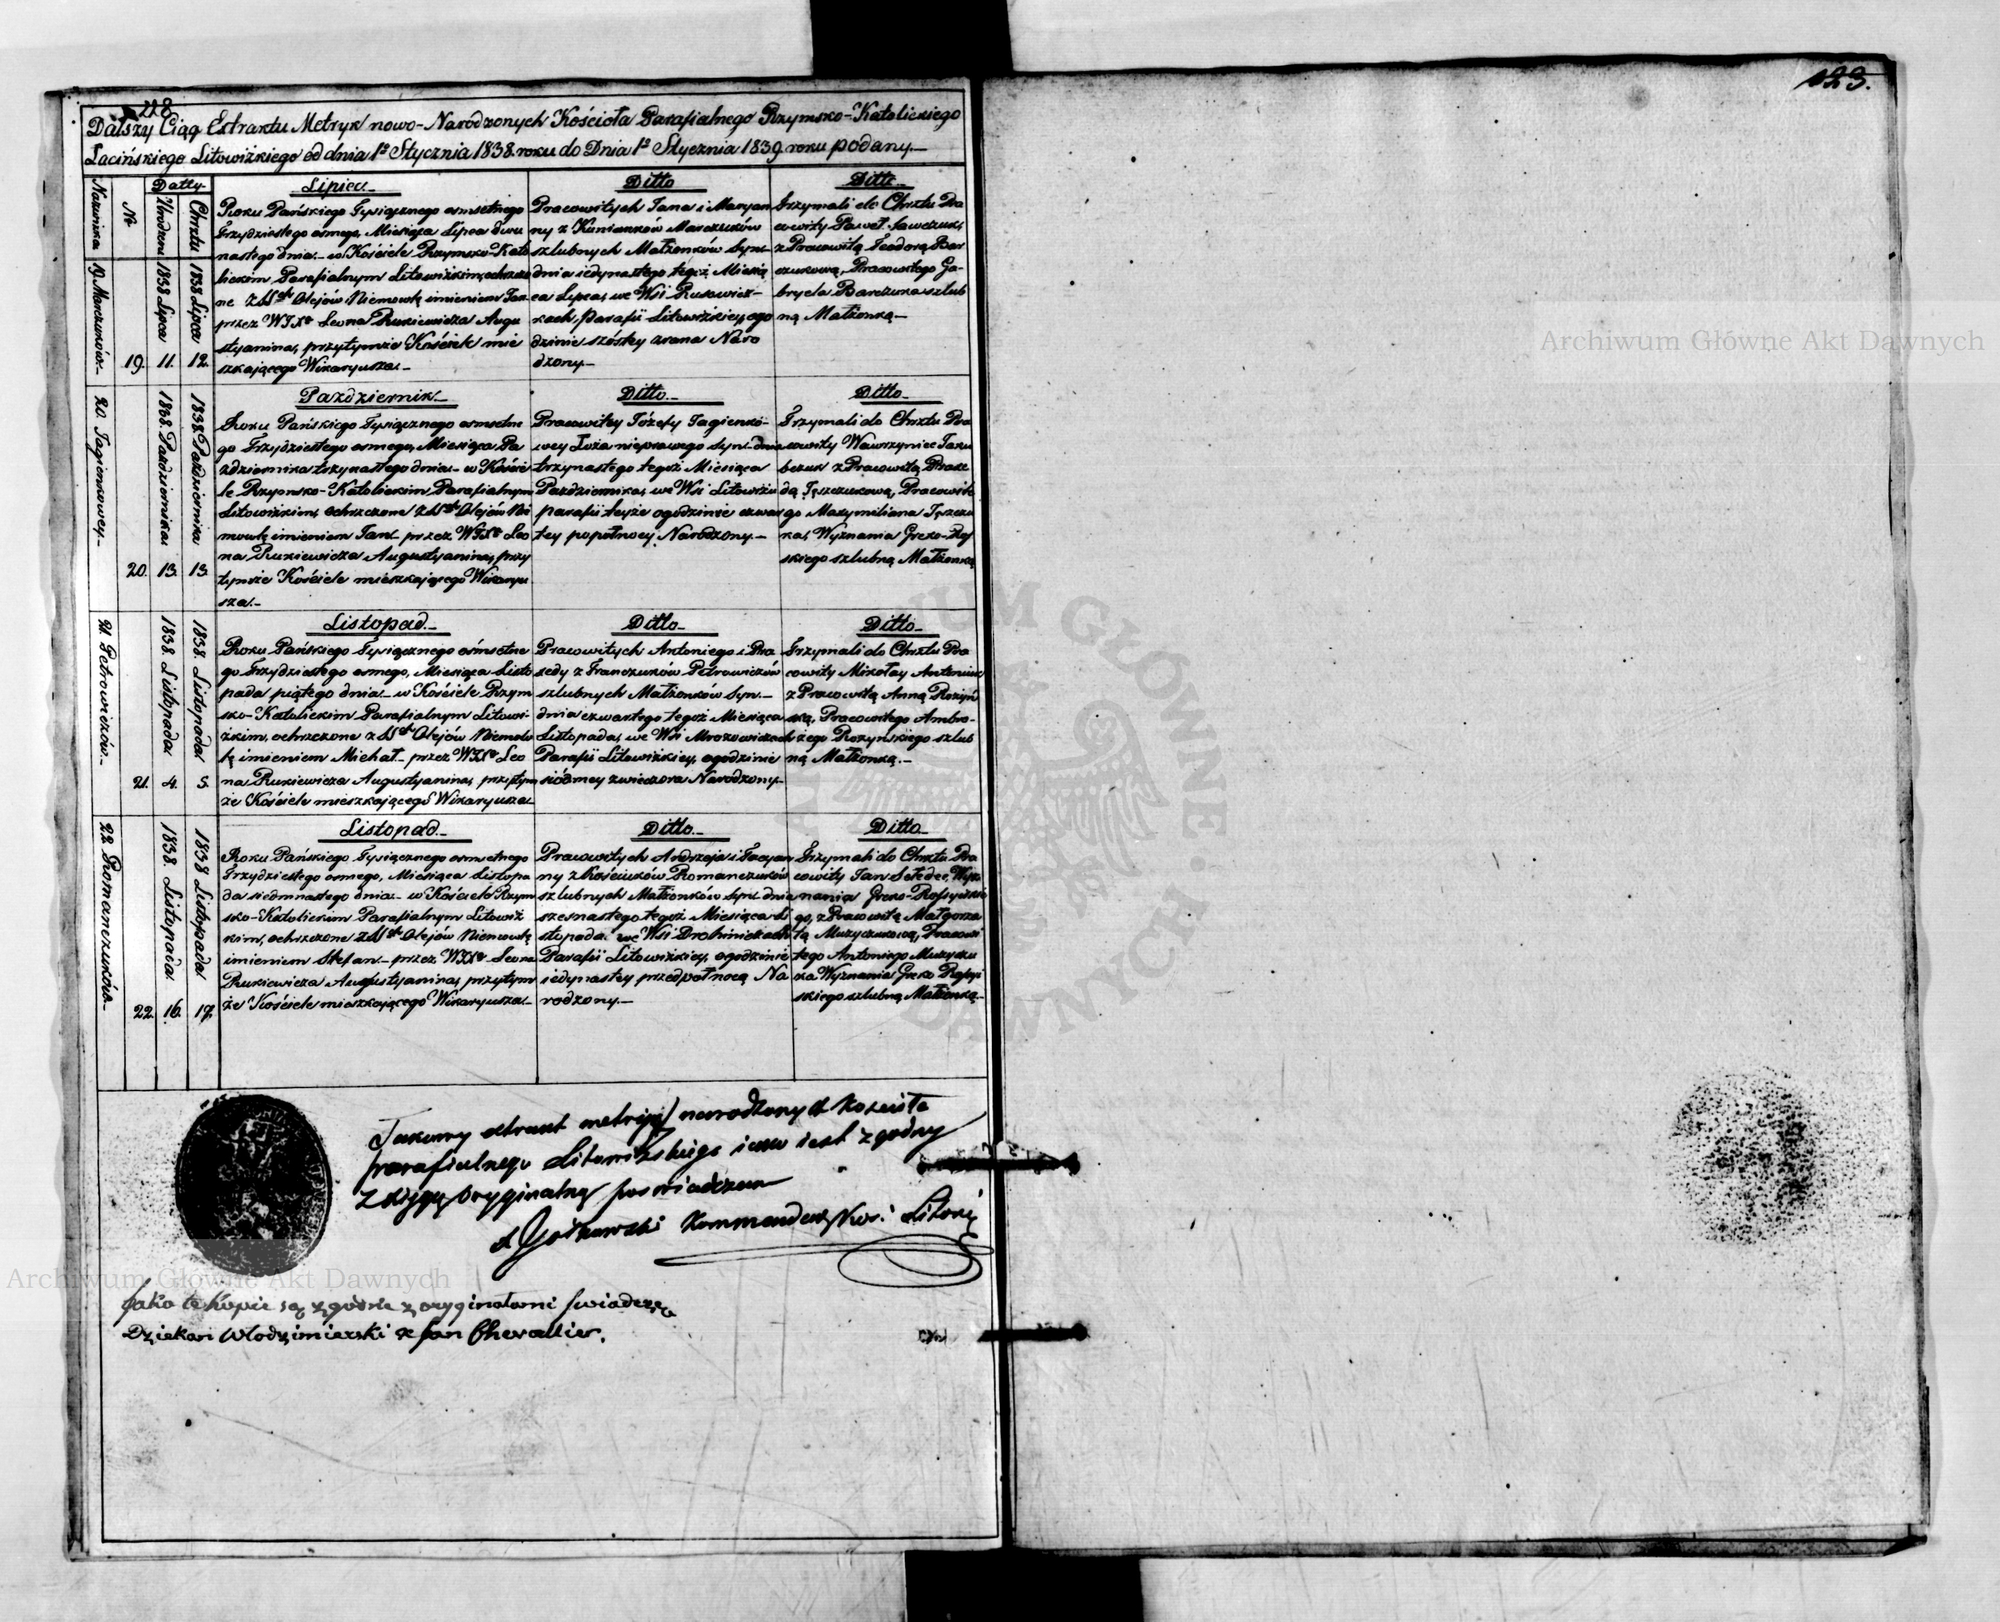 228
123.
Dalszy Ciąg Extraktu Metryk nowo-Narodzonych Kościoła Parafialnego Rzymsko-Katolickiego
Łacińskiego Litowizkiego od dnia 1º Stycznia 1838. roku do Dnia 1º Stycznia 1839 roku podany.—
Nazwiska
N
Datty.
Urodzenia
Chrztu
19. Marczuków.—
19.
1838 Lipca
11.
1838 Lipca
12.
Lipiec.—
Roku Pańskiego Tysiącznego osmsetnego
Trzydziestego osmego, Miesiąca Lipca dwu
nastego dnia.— w Kościele Rzymsko-Kato
lickim Parafialnym Litowizkim, ochrzczo
ne z SStch Olejów Niemowlę imieniem Jan
przez WJXa Leona Rukiewicza Augu
styanina, przytymże Kościele mie
szkającego Wikaryusza.—
Ditto
Pracowitych Jana i Maryan
ny z Kuniarków Marczuków
szlubnych Małżonków Syn.
dnia iedynastego tegoż Miesią
ca Lipca, we Wsi Rusowicz-
kach, parafii Litowizkiey, ogo
dzinie szóstey zrana Naro
dzony.—
Ditto.—
Trzymali do Chrztu Pra
cowity Paweł Sawczuk,
z Pracowitą Teodorą Bar
czukową, Pracowitego Ga-
bryela Barczuka szlub
ną Małżonką.—
20. Jagienkowey.—
20.
1838. Października
13.
1838 Października
13.
Pazdziernik.—
Roku Pańskiego Tysiącznego osmsetne
go Trzydziestego osmego, Miesiąca Pa
zdziernika trzynastego dnia.— w Koście
le Rzymsko-Katolickim Parafialnym
Litowizkim, ochrzczone z SStch Olejów Nie
mowlę imieniem Jan. przez WJXa Leo
na Rukiewicza Augustyanina, przy
tymże Kościele mieszkającego Wikaryu
sza.—
Ditto.—
Pracowitey Józefy Jagienko-
wey Łoża nieprawego Syn. dnia
trzynastego tegoż Miesiąca
Pazdziernika, we Wsi Litowiżu
parafii teyże ogodzinie czwar
tey popołnocy Narodzony.—
Ditto.—
Trzymali do Chrztu Pra
cowity Wawrzyniec Jaku
bczuk z Pracowitą Prake
dą Tęszczukową, Pracowite
go Maxymiliana Tęszczu
ka, Wyznania Greko-Ros
skiego szlubną Małżonką
21. Petrowiczów.—
21.
1838. Listopada
4.
1838. Listopada
5.
Listopad.—
Roku Pańskiego Tysiącznego osmsetne
go Trzydziestego osmego, Miesiąca Listo
pada piątego dnia.— w Kościele Rzym
sko-Katolickim Parafialnym Litowi-
zkim, ochrzczone z SStch Olejów Niemow
lę imieniem Michał.— przez WJXa Leo
na Rukiewicza Augustyanina, przytym
że Kościele mieszkającego Wikaryusza.
Ditto.—
Pracowitych Antoniego i Pra
xedy z Franczuków Petrowiczów
szlubnych Małżonków Syn.—
dnia czwartego tegoż Miesiąca
Listopada, we Wsi Mrozowiczach
Parafii Litowizkiey, ogodzinie
siódmey zwieczora Narodzony.—
Ditto
Trzymali do Chrztu Pra
cowity Mikołay Antoniuk
z Pracowitą Anną Rożyń
ską, Pracowitego Ambro-
żego Rożynskiego szlub
ną Małżonką.—
22. Romanczuków.—
22.
1838. Listopada
16.
1838 Listopada
17.
Listopad.—
Roku Pańskiego Tysiącznego osmsetnego
Trzydziestego osmego, Miesiąca Listopa
da siedmnastego dnia.— w Kościele Rzym
sko-Katolickim Parafialnym Litowiz
kim, ochrzczone z SStch Olejów Niemowlę
imieniem Stefan.— przez WJXa Leona
Rukiewicza Augustyanina, przytym
że Kościele mieszkającego Wikaryusza.
Ditto.—
Pracowitych Andrzeja i Tacyan
ny z Kościuków Romanczuków
szlubnych Małżonków Syn. dnia
szesnastego tegoż Miesiąca Li
stopada we Wsi Drohiniczkach
Parafii Litowizkiey, ogodzinie
iedynastey przedpołnocą Na
rodzony.—
Ditto.—
Trzymali do Chrztu Pra
cowity Jan Seledec, Wyz
nania Greko-Rossyiskie
go, z Pracowitą Małgorza
tą Muzyczukową, Pracowi
tego Antoniego Muzyczu
ka Wyznania Greko Rossyi
skiego szlubną Małżonką.—
Takowy extrakt metryk narodzonych Kościoła
parafialnego Litowizskiego iako iest zgodny
z Xięgą oryginalną poswiadczam
Kommendarz Kos:
Jako te kopie są zgodne z oryginałami świadczę
Dziekan Włodzimierski X Jan Chevallier.
Archiwum Główne Akt Dawnych
Archiwum Główne Akt Dawnych
ARCHIWUM GŁÓWNE AKT DAWNYCH